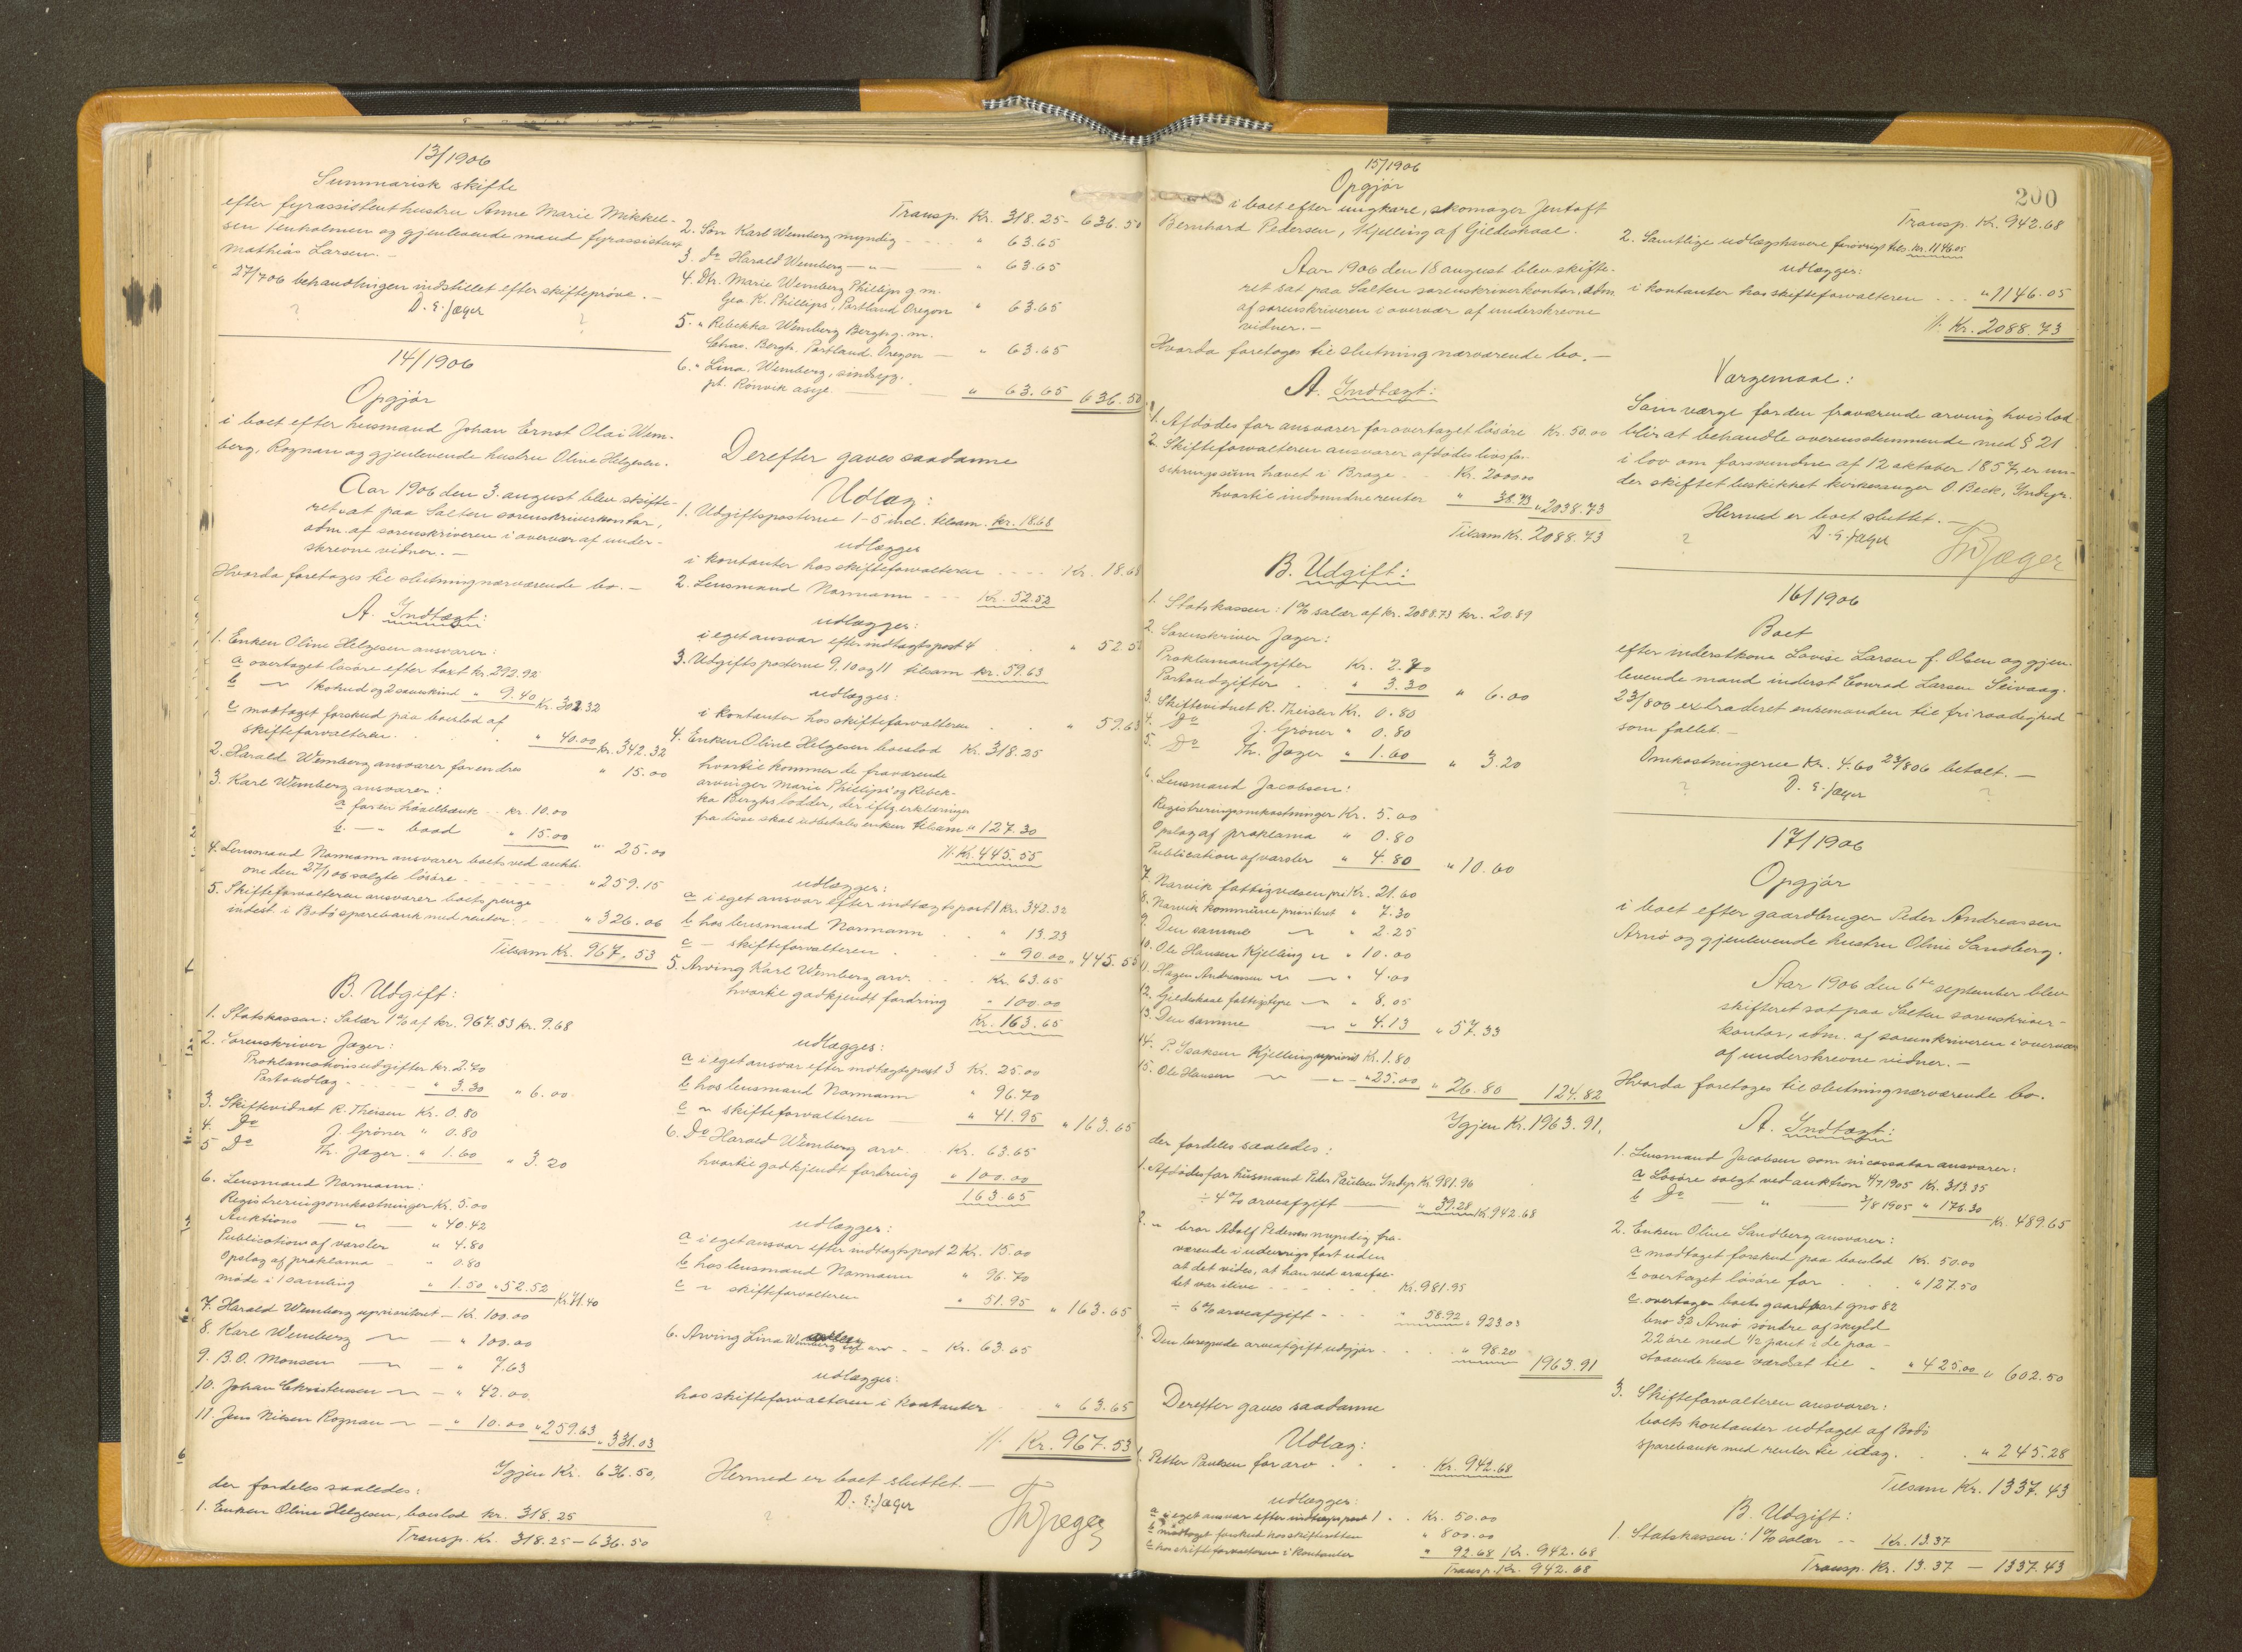 13/1906
Summarisk skifte
efter fyrassistenthustru Anne Marie Mikkel-
sen Tenholmen og gjenlevende mand fyrassistent
Mathias Larsen. -
27/7 06 behandlingen indstillet efter skifteprøve. -
D. E. Jæger
14/1906
Opgjør
i boet efter husmand Johan Ernst Olai Wem-
berg, Rognan og gjenlevende hustru Oline Helgesen.
Aar 1906 den 3. august blev skifte-
ret sat paa Salten sorenskriverkontor,
adm. af sorenskriveren i overvær af under-
skrevne vidner. -
Hvorda foretoges til slutning nærværende bo. -
A. Indtægt:
1. Enken Oline Helgesen ansvarer:
a overtaget løsøre efter taxt kr. 292.92
b - 1 kohud og 2 saueskind " 9.40 Kr. 302.32
c modtaget forskud paa boeslod af
skifteforvalteren . . " 40.00 Kr. 342.32
2. Harald Wemberg ansvarer for en dres " 15.00
3. Karl Wemberg ansvarer:
a for en høvelbænk . . kr. 10.00
b. - " baad " 15.00 " 25.00
4. Lensmand Normann ansvarer boets ved aukti-
onen den 27/1 06 solgte løsøre - - - " 259.15
5. Skifteforvalteren ansvarer boets penge
indest. i Bodø sparebank med renter . . " 326.06
Tilsam Kr. 967.53
B. Udgift:
1. Statskassen: Salær 1% af kr. 967.53 kr. 9.68
2. Sorenskriver Jæger:
Proklamationsudgifter Kr. 2.70
Portoudlæg - - - " 3.30 " 6.00
3. Skiftevidnet R. Theisen Kr. 0.80
4. Do J. Grøner " 0.80
5 Do Th. Jæger . " 1.60 " 3.20
6. Lensmand Normann:
Registreringsomkostninger Kr. 5.00
Auktions — " — " 40.42
Publication af varsler " 4.80
Opslag af proklama - " 0.80
møde i 1 samling " 1.50 " 52.52 Kr. 71.40
7. Harald Wemberg uprioritert - Kr. 100.00
8. Karl Wemberg — - " 100.00
9. B. O. Monsen — - " 7.63
10. Johan Christensen — - " 42.00
11. Jens Nilsen Rognan — - " 10.00 " 259.63 " 331.03
Igjen Kr. 636.50,
der fordeles saaledes:
1. Enken Oline Helgesen, boeslod kr. 318.25
Transp. Kr. 318.25 - 636.50
Transp. Kr. 318.25 - 636.50
2. Søn Karl Wemberg myndig - . . . " 63.65
3. do Harald Wemberg — " — " 63.65
4. Dtr. Marie Wemberg Phillips g. m.
Geo. K. Phillips, Portland Oregon " 63.65
5. " Rebekka Wemberg Bergh g. m.
Chas. Bergh, Portland, Oregon — " 63.65
6. " Lina Wemberg, sindsyg.
pt. Rønvik asyl. — " 63.65 636.50
Derefter gaves saadanne
Udlæg:
1. Udgiftsposterne 1-5 incl. tilsam. kr. 18.68
udlægges
i kontanter hos skifteforvalteren - - - - Kr. 18.68
2. Lensmand Normann - - - Kr. 52.52
udlægges:
i eget ansvar efter indtægtspost 4 " 52.52
3. Udgiftsposterne 9. 10 og 11 tilsam kr. 59.63
udlægges:
i kontanter hos skifteforvalteren . . " 59.63
4. Enken Oline Helgesen boeslod Kr. 318.25
hvortil kommer de fraværende
arvinger Marie Phillips' og Rebek-
ka Berghs lodder, der iflg. erklæringer
fra disse skal udbetales enken tilsam " 127.30
Kr. 445.55
udlægges:
a i eget ansvar efter indtægtspost 1 Kr. 342.32
b hos lensmand Normann . . " 13.23
c - skifteforvalteren . . " 90.00 " 445.55
5. Arving Karl Wemberg arv. . . . Kr. 63.65
hvortil godkjendt fordring " 100.00
Kr. 163.65
udlægges:
a i eget ansvar efter indtægtspost 3 Kr. 25.00
b hos lensmand Normann " 96.70
c " skifteforvalteren — " 41.95 " 163.65
6. Do Harald Wemberg arv. . . Kr. 63.65
hvortil godkjendt fordring " 100.00
163.65
udlægges:
a i eget ansvar efter indtægtspost 2 Kr. 15.00
b hos lensmand Normann " 96.70
c - skifteforvalteren " 51.95 " 163.65
6. Arving Lina Wemberg arv - - Kr. 63.65
udlægges:
hos skifteforvalteren i kontanter " 63.65
Kr. 967.53
Hermed er boet sluttet. -
D. E. Jæger
Th Jæger
200
15/1906
Opgjør
i boet efter ungkarl, skomager Jentoft
Bernhard Pedersen, Kjelling af Gildeskaal.
Aar 1906 den 18 august blev skifte-
ret sat paa Salten sorenskriverkontor, adm.
af sorenskriveren i overvær af underskrevne
vidner. -
Hvorda foretoges til slutning nærværende bo. -
A. Indtægt:
1. Afdødes far ansvarer for overtaget løsøre Kr. 50.00
2. Skifteforvalteren ansvarer afdødes livsfor-
sikringssum hævet i Brage . . Kr. 2000.00
hvortil indvundne renter " 38.73 " 2038.73
Tilsam Kr. 2088.73
B. Udgift:
1. Statskassen: 1% salær af kr. 2088.73 kr. 20.89
2. Sorenskriver Jæger:
Proklamaudgifter Kr. 2.70
Portoudgifter . " 3.30 " 6.00
3. Skiftevidnet R. Theisen Kr. 0.80
4. Do J. Grøner " 0.80
5. Do Th. Jæger " 1.60 " 3.20
6. Lensmand Jacobsen:
Registreringsomkostninger Kr. 5.00
Opslag af proklama " 0.80
Publication af varsler " 4.80 " 10.60
7. Narvik fattigvæsen pri. Kr. 21.60
8. Narvik kommune prioritert " 7.30
9. Den samme — " 2.25
10. Ole Hansen Kjelling — " 10.00
11. Hagen Andreassen — " 4.00
12. Gildeskaal fattigtype — " 8.05
13. Den samme — " 4.13 " 57.33
14. P. Isaksen Kjelling upriorit Kr. 1.80
15. Ole Hansen — " 25.00 " 26.80 124.82
Igjen Kr. 1963.91,
der fordeles saaledes:
1. Afdødes far husmand Peder Paulsen Indyr Kr. 981.96
÷ 4% arveafgift — " 39.28 Kr. 942.68
2. " bror Adolf Pedersen myndig fra-
værende i udenrigs fart uden
at det vides, at han ved arvefal-
det var ilive - - - Kr. 981.95
÷ 6% arveafgift - - - " 58.92 " 923.03
3. Den beregnede arveafgift udgjør . . . " 98.20 1963.91
Derefter gaves saadanne
Udlæg:
1. Petter Paulsen for arv . . . Kr. 942.68
udlægges:
a i eget ansvar efter indtægtspost 1 . . Kr. 50.00
b modtaget forskud hos skifteretten " 800.00
c hos skifteforvalteren i kontanter " 92.68 Kr. 942.68
Transp. Kr. 942.68
Transp. Kr. 942.68
2. Samtlige udlægshavere forøvrigt tils. kr. 1146.05
udlægges:
i kontanter hos skifteforvalteren . . . " 1146.05
Kr. 2088.73
Værgemaal:
Som værge for den fraværende arving hvis lod
blir at behandle overensstemmende med § 21
i lov om forsvundne af 12 oktober 1857, er un-
der skiftet beskikket kirkesanger O. Beck, Indyr.
Hermed er boet sluttet. -
D. E. Jæger
Th Jæger
16/1906
Boet
efter inderstkone Lovise Larsen f. Olsen og gjen-
levende mand inderst Conrad Larsen Seivaag.
23/8 06 extraderet enkemanden til fri raadighed
som fallit. -
Omkostningerne Kr. 4.60 23/8 06 betalt. -
D. E. Jæger
17/1906
Opgjør
i boet efter gaardbruger Peder Andreassen
Arnø og gjenlevende hustru Oline Sandberg.
Aar 1906 den 6te september blev
skifteret sat paa Salten sorenskriver-
kontor, adm. af sorenskriveren i overvær
af underskrevne vidner. -
Hvorda foretoges til slutning nærværende bo.
A. Indtægt:
1. Lensmand Jacobsen som incassator ansvarer:
a Løsøre solgt ved auktion 4/7 1905 Kr. 313.35
b Do — " — 3/8 1905 " 176.30 Kr. 489.65
2. Enken Oline Sandberg ansvarer:
a modtaget forskud paa boeslod Kr. 50.00
b overtaget løsøre for . . . " 127.50
c. overtagen boets gaardpart gno 82
bno 32 Arnø søndre af skyld
22 øre med 1/2 part i de paa-
staaende huse værdsat til . " 425.00 " 602.50
3. Skifteforvalteren ansvarer:
boets kontanter udtaget af Bodø
sparebank med renter til idag. . . " 245.28
Tilsam Kr. 1337.43
B. Udgift:
1. Statskassen: 1% salær - - Kr. 13.37
Transp. Kr. 13.37 — 1337.43